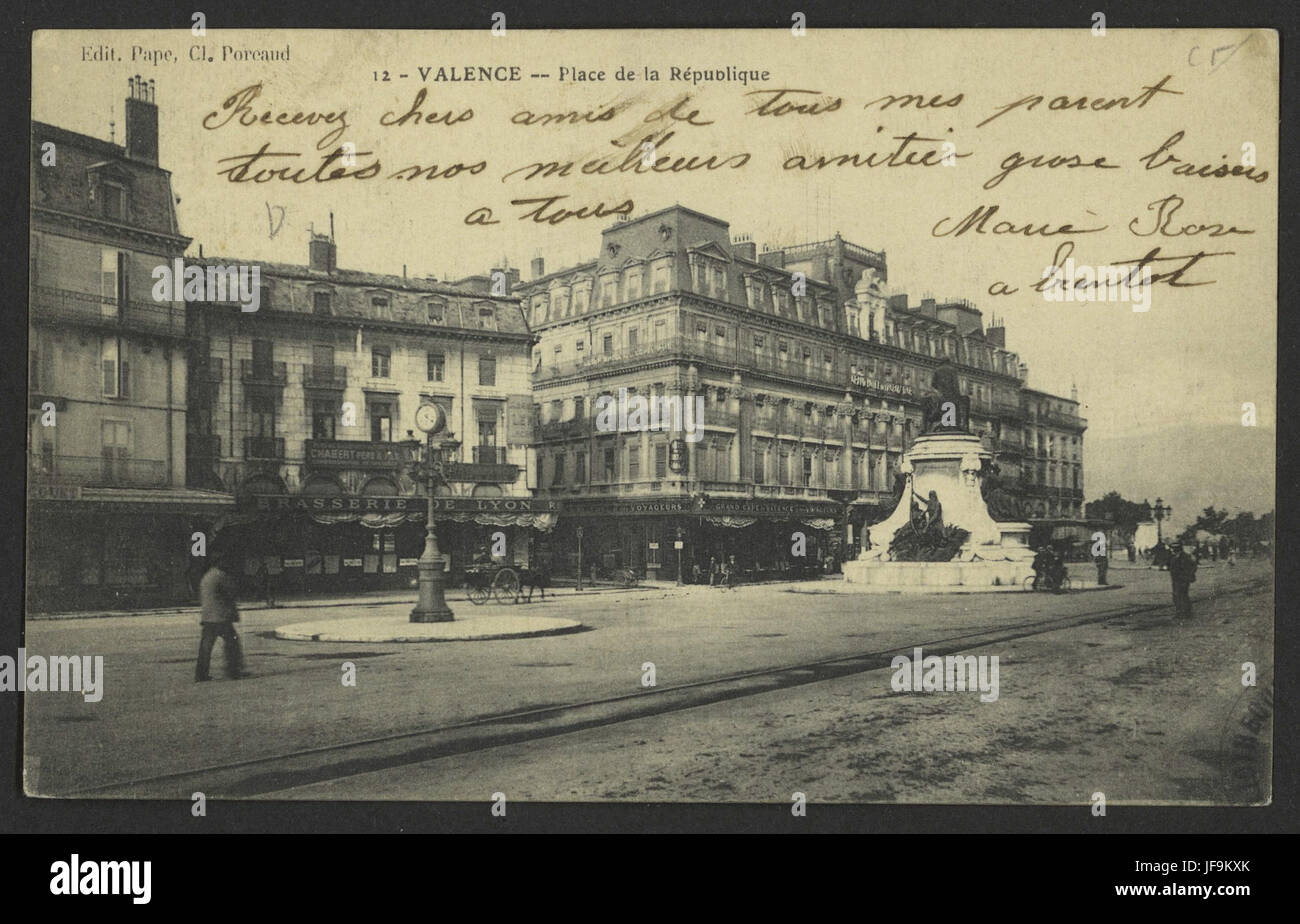 Edit. Pape, Cl. Porcaud
12 - VALENCE -- Place de la République
Recevez chers amis de tous mes parent
toutes nos meilleurs amitier grose baisers
a tous
Marie Rose
a bientot
CHABERT PERE & FILS
BRASSERIE DE LYON
VOYAGEURS
GRAND CAFE
alamy stock photo
Image ID: JF9KXK
www.alamy.com